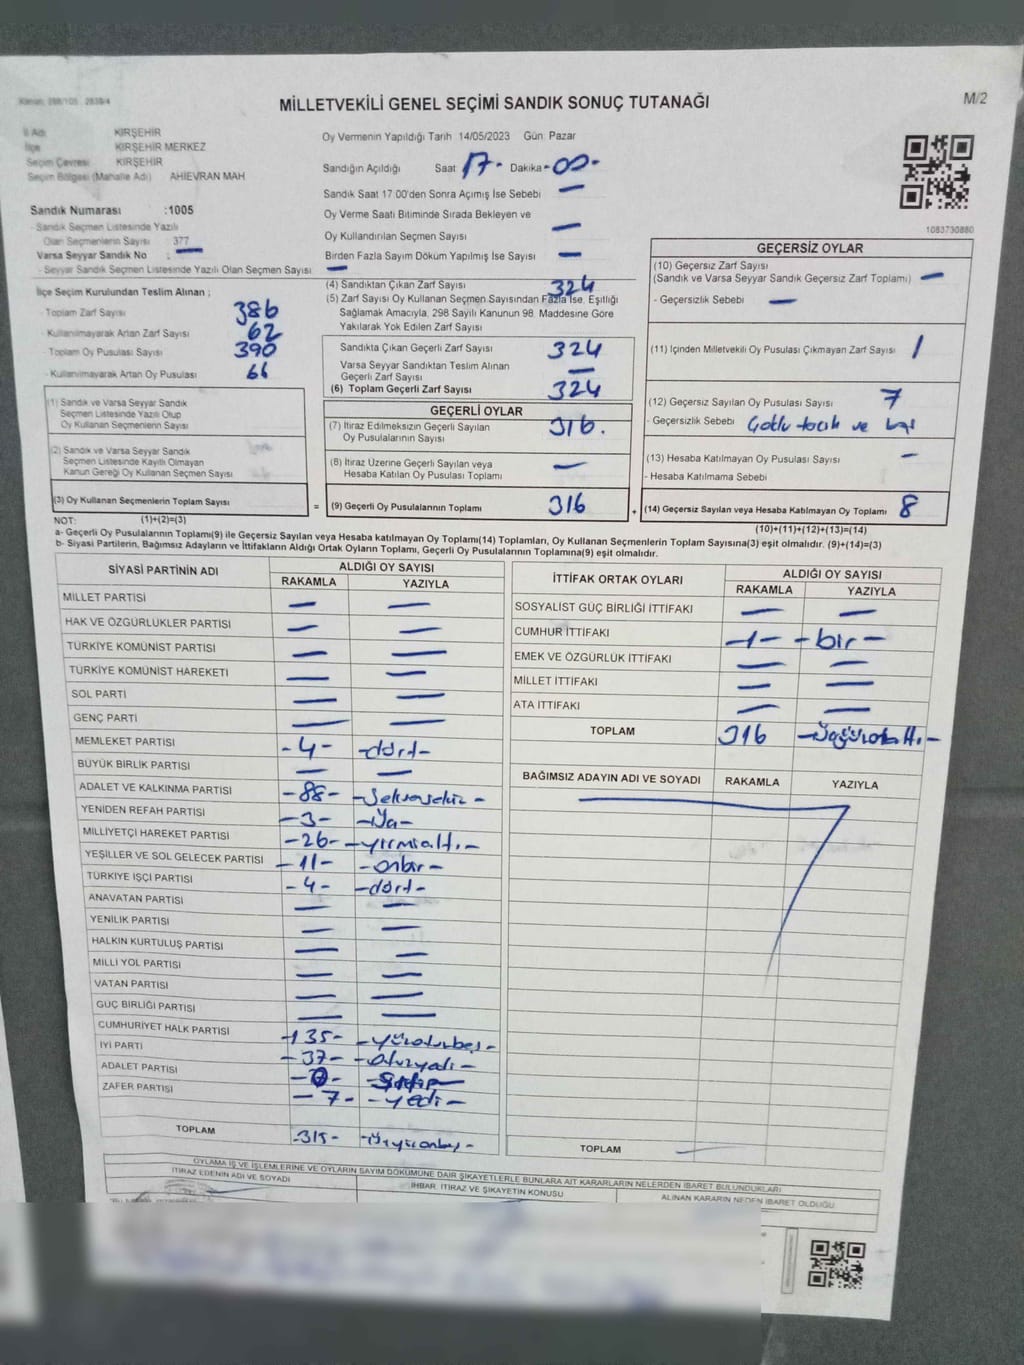 MİLLETVEKİLİ GENEL SEÇİMİ SANDIK SONUÇ TUTANAĞI
M/2
İl Adı KIRŞEHİR
İlçe KIRŞEHİR MERKEZ
Seçim Çevresi KIRŞEHİR
Seçim Bölgesi (Mahalle Adı) AHİEVRAN MAH
Oy Vermenin Yapıldığı Tarih 14/05/2023 Gün: Pazar
Sandığın Açıldığı Saat 17- Dakika -00-
Sandık Saat 17.00'den Sonra Açımış İse Sebebi —
Oy Verme Saati Bitiminde Sırada Bekleyen ve
Oy Kullandırılan Seçmen Sayısı —
Birden Fazla Sayım Döküm Yapılmış İse Sayısı —
1083730880
Sandık Numarası :1005
- Sandık Seçmen Listesinde Yazılı
Olan Seçmenlerin Sayısı 377
Varsa Seyyar Sandık No : —
- Seyyar Sandık Seçmen Listesinde Yazılı Olan Seçmen Sayısı —
İlçe Seçim Kurulundan Teslim Alınan ;
- Toplam Zarf Sayısı 386
- Kullanılmayarak Artan Zarf Sayısı 62
- Toplam Oy Pusulası Sayısı 390
- Kullanılmayarak Artan Oy Pusulası 66
(1) Sandık ve Varsa Seyyar Sandık
Seçmen Listesinde Yazılı Olup
Oy Kullanan Seçmenlerin Sayısı
(2) Sandık ve Varsa Seyyar Sandık
Seçmen Listesinde Kayıtlı Olmayan
Kanun Gereği Oy Kullanan Seçmen Sayısı
(3) Oy Kullanan Seçmenlerin Toplam Sayısı
=
(4) Sandıktan Çıkan Zarf Sayısı 324
(5) Zarf Sayısı Oy Kullanan Seçmen Sayısından Fazla İse, Eşitliği
Sağlamak Amacıyla, 298 Sayılı Kanunun 98. Maddesine Göre
Yakılarak Yok Edilen Zarf Sayısı
Sandıkta Çıkan Geçerli Zarf Sayısı 324
Varsa Seyyar Sandıktan Teslim Alınan
Geçerli Zarf Sayısı —
(6) Toplam Geçerli Zarf Sayısı 324
GEÇERLİ OYLAR
(7) İtiraz Edilmeksizin Geçerli Sayılan
Oy Pusulalarının Sayısı 316.
(8) İtiraz Üzerine Geçerli Sayılan veya
Hesaba Katılan Oy Pusulası Toplamı —
(9) Geçerli Oy Pusulalarının Toplamı 316
+
GEÇERSİZ OYLAR
(10) Geçersiz Zarf Sayısı
(Sandık ve Varsa Seyyar Sandık Geçersiz Zarf Toplamı) —
- Geçersizlik Sebebi —
(11) İçinden Milletvekili Oy Pusulası Çıkmayan Zarf Sayısı 1
(12) Geçersiz Sayılan Oy Pusulası Sayısı 7
- Geçersizlik Sebebi ve
(13) Hesaba Katılmayan Oy Pusulası Sayısı —
- Hesaba Katılmama Sebebi
(14) Geçersiz Sayılan veya Hesaba Katılmayan Oy Toplamı 8
NOT: (1)+(2)=(3)
(10)+(11)+(12)+(13)=(14)
a- Geçerli Oy Pusulalarının Toplamı(9) ile Geçersiz Sayılan veya Hesaba Katılmayan Oy Toplamı(14) Toplamları, Oy Kullanan Seçmenlerin Toplam Sayısına(3) eşit olmalıdır. (9)+(14)=(3)
b- Siyasi Partilerin, Bağımsız Adayların ve İttifakların Aldığı Ortak Oyların Toplamı, Geçerli Oy Pusulalarının Toplamına(9) eşit olmalıdır.
SİYASİ PARTİNİN ADI ALDIĞI OY SAYISI
RAKAMLA YAZIYLA
MİLLET PARTİSİ — —
HAK VE ÖZGÜRLÜKLER PARTİSİ — —
TÜRKİYE KOMÜNİST PARTİSİ — —
TÜRKİYE KOMÜNİST HAREKETİ — —
SOL PARTİ — —
GENÇ PARTİ — —
MEMLEKET PARTİSİ -4- -dört-
BÜYÜK BİRLİK PARTİSİ — —
ADALET VE KALKINMA PARTİSİ -88- -Seksensekiz-
YENİDEN REFAH PARTİSİ -3- -Üç-
MİLLİYETÇİ HAREKET PARTİSİ -26- -yirmialtı-
YEŞİLLER VE SOL GELECEK PARTİSİ -11- -onbir-
TÜRKİYE İŞÇİ PARTİSİ -4- -dört-
ANAVATAN PARTİSİ — —
YENİLİK PARTİSİ — —
HALKIN KURTULUŞ PARTİSİ — —
MİLLİ YOL PARTİSİ — —
VATAN PARTİSİ — —
GÜÇ BİRLİĞİ PARTİSİ — —
CUMHURİYET HALK PARTİSİ -135- -yüzotuzbeş-
İYİ PARTİ -37- -otuzyedi-
ADALET PARTİSİ
ZAFER PARTİSİ -7- -yedi-
TOPLAM -315- -Üçyüzonbeş-
İTTİFAK ORTAK OYLARI ALDIĞI OY SAYISI
RAKAMLA YAZIYLA
SOSYALİST GÜÇ BİRLİĞİ İTTİFAKI — —
CUMHUR İTTİFAKI -1- -bir-
EMEK VE ÖZGÜRLÜK İTTİFAKI — —
MİLLET İTTİFAKI — —
ATA İTTİFAKI — —
TOPLAM 316
BAĞIMSIZ ADAYIN ADI VE SOYADI RAKAMLA YAZIYLA
TOPLAM —
OYLAMA İŞ VE İŞLEMLERİNE VE OYLARIN SAYIM DÖKÜMÜNE DAİR ŞİKAYETLERLE BUNLARA AİT KARARLARIN NELERDEN İBARET BULUNDUKLARI
İTİRAZ EDENİN ADI VE SOYADI İHBAR, İTİRAZ VE ŞİKAYETİN KONUSU ALINAN KARARIN NEDEN İBARET OLDUĞU